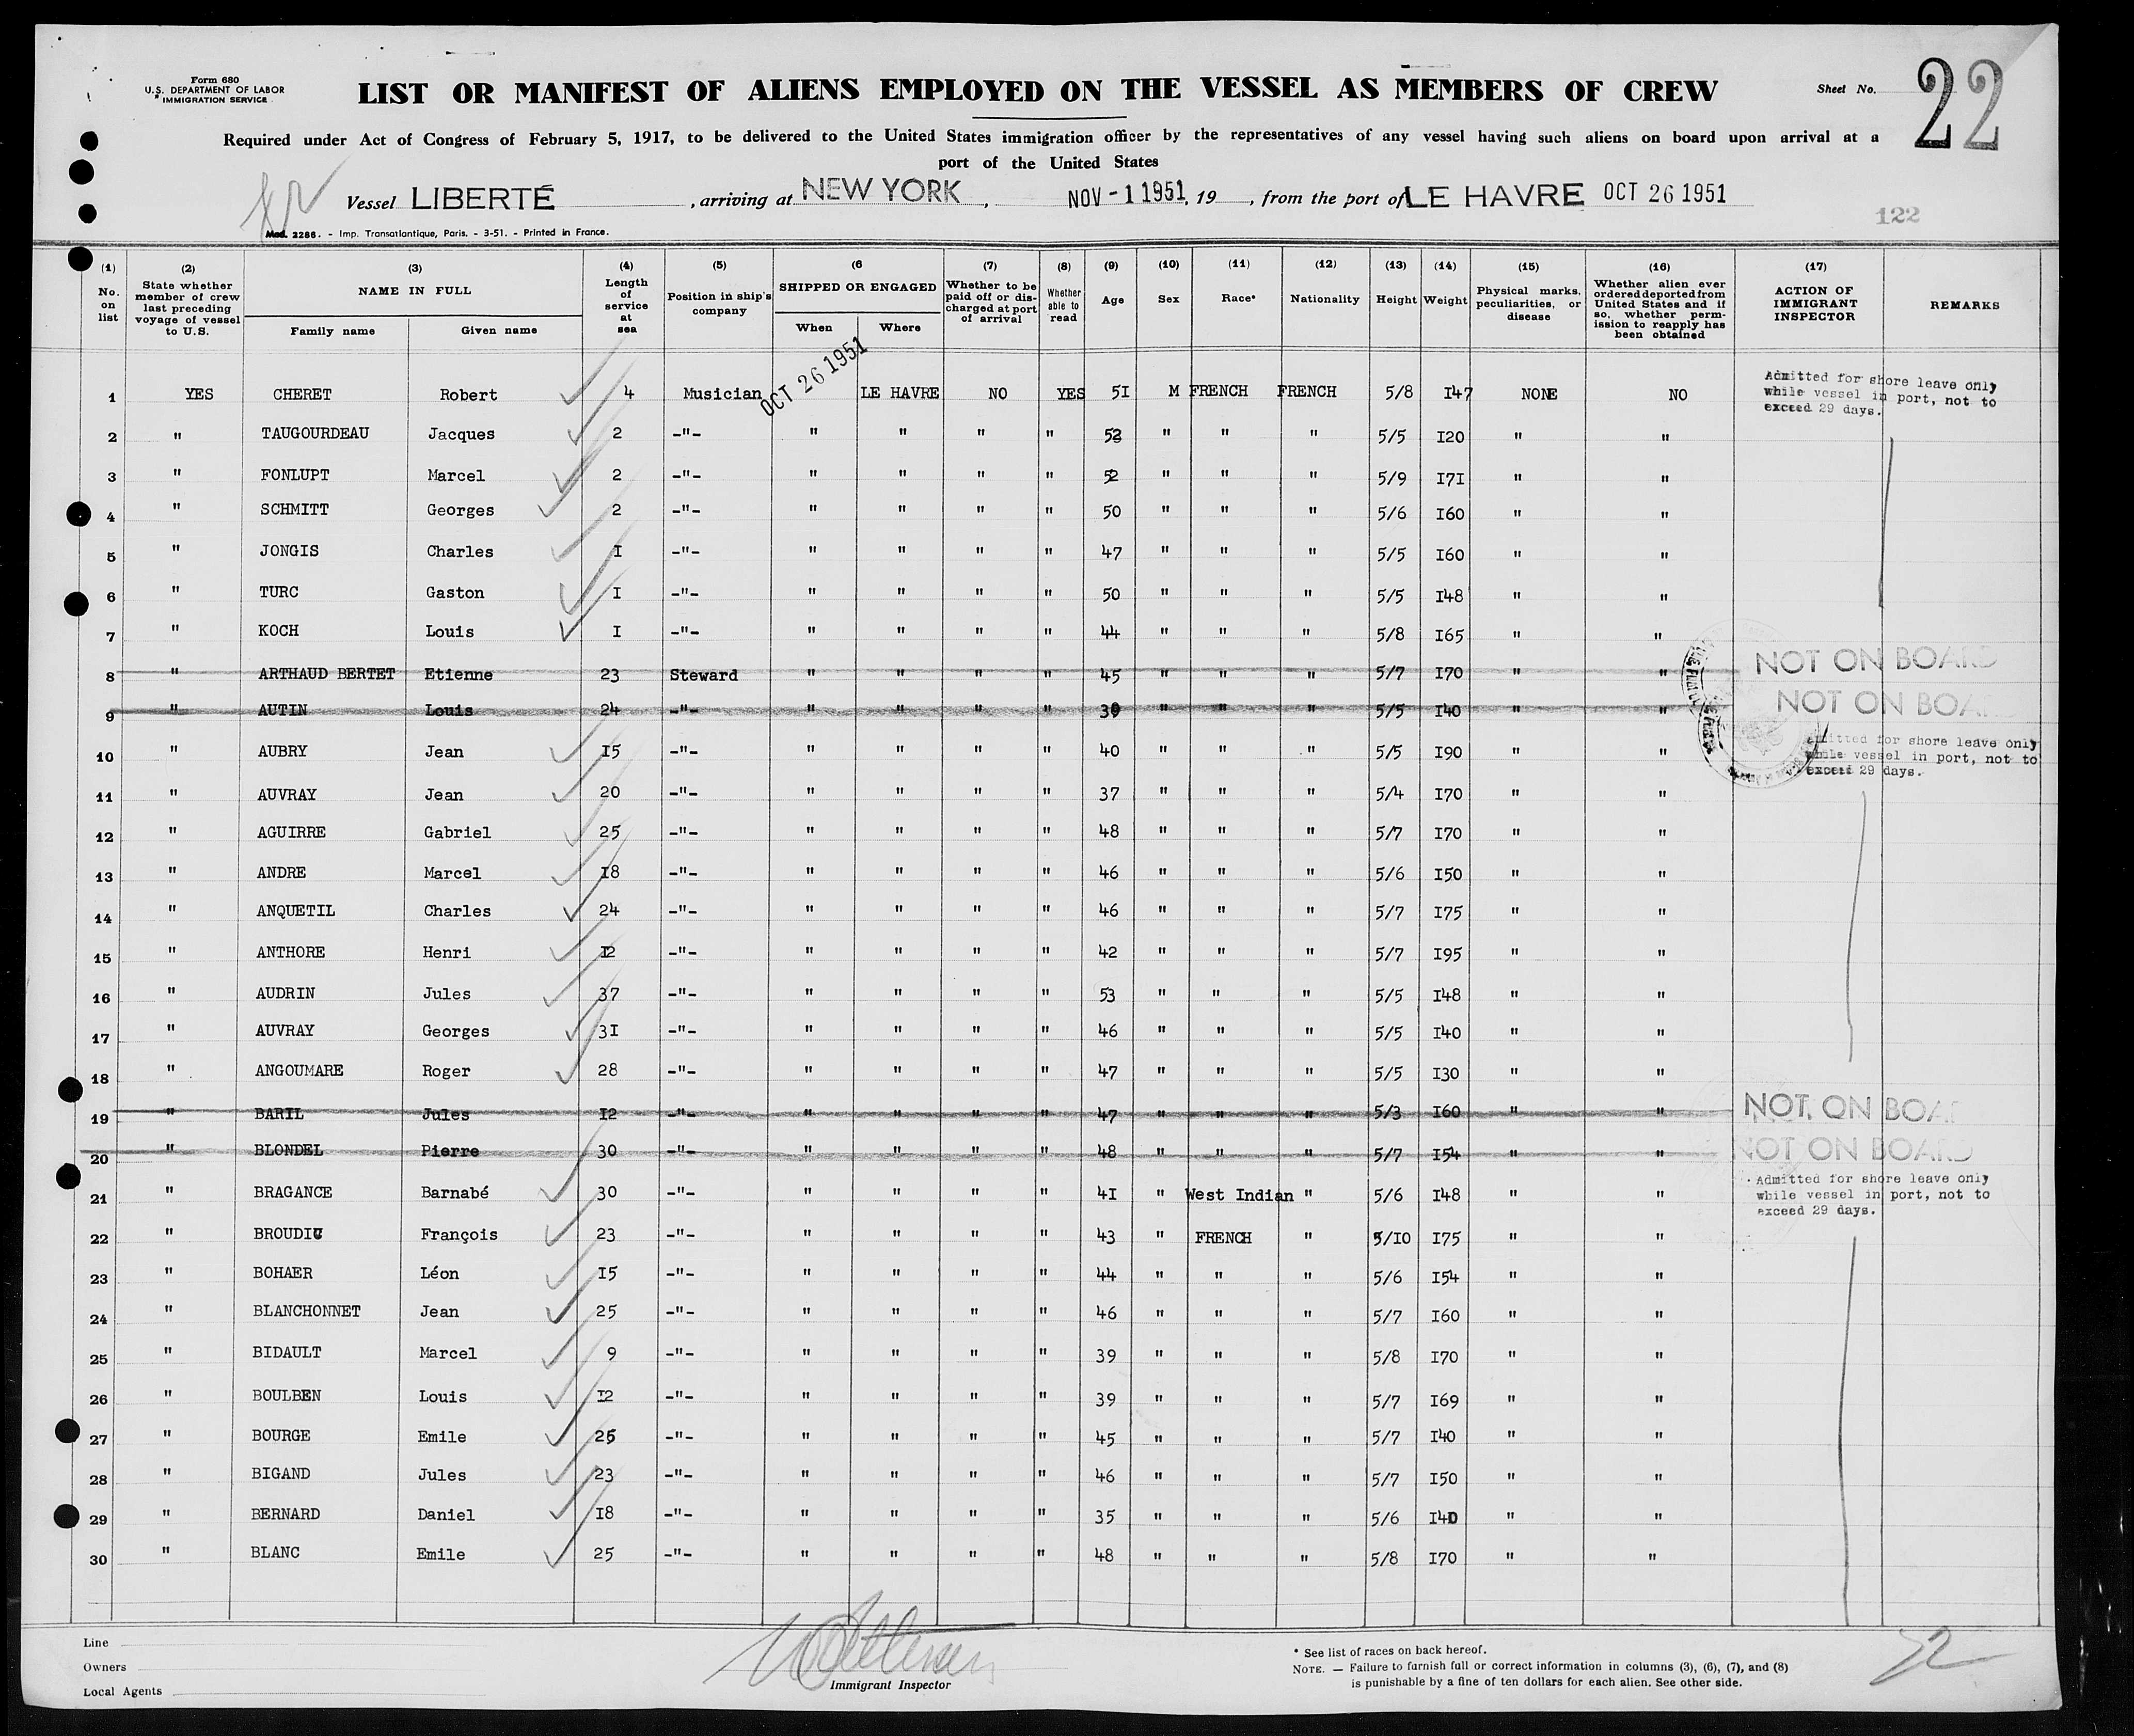 Form 680
U.S. DEPARTMENT OF LABOR
IMMIGRATION SERVICE
LIST OR MANIFEST OF ALIENS EMPLOYED ON THE VESSEL AS MEMBERS OF CREW
Sheet No. 22
Required under Act of Congress of February 5, 1917, to be delivered to the United States immigration officer by the representatives of any vessel having such aliens on board upon arrival at a
port of the United States
Vessel LIBERTÉ , arriving at NEW YORK , NOV - 1 1951, 19 , from the port of LE HAVRE OCT 26 1951
122
Mod. 2286. - Imp. Transatlantique, Paris. - 3-51. - Printed in France.
(1) No. on list (2) State whether member of crew last preceding voyage of vessel to U.S. (3) NAME IN FULL Family name Given name (4) Length of service at sea (5) Position in ship's company (6 SHIPPED OR ENGAGED When Where (7) Whether to be paid off or discharged at port of arrival (8) Whether able to read (9) Age (10) Sex (11) Race* (12) Nationality (13) Height (14) Weight (15) Physical marks, peculiarities, or disease (16) Whether alien ever ordered deported from United States and if so, whether permission to reapply has been obtained (17) ACTION OF IMMIGRANT INSPECTOR REMARKS
1 YES CHERET Robert 4 Musician OCT 26 1951 LE HAVRE NO YES 51 M FRENCH FRENCH 5/8 I47 NONE NO Admitted for shore leave only while vessel in port, not to exceed 29 days.
2 " TAUGOURDEAU Jacques 2 -"- " " " " 52 " " " 5/5 I20 " "
3 " FONLUPT Marcel 2 -"- " " " " 52 " " " 5/9 I7I " "
4 " SCHMITT Georges 2 -"- " " " " 50 " " " 5/6 I60 " "
5 " JONGIS Charles I -"- " " " " 47 " " " 5/5 I60 " "
6 " TURC Gaston I -"- " " " " 50 " " " 5/5 I48 " "
7 " KOCH Louis I -"- " " " " 44 " " " 5/8 I65 " "
8 " ARTHAUD BERTET Etienne 23 Steward " " " " 45 " " " 5/7 I70 " " NOT ON BOARD
9 " AUTIN Louis 24 -"- " " " " 39 " " " 5/5 I40 " " NOT ON BOA
10 " AUBRY Jean I5 -"- " " " " 40 " " " 5/5 I90 " " Admitted for shore leave only while vessel in port, not to exceed 29 days.
11 " AUVRAY Jean 20 -"- " " " " 37 " " " 5/4 I70 " "
12 " AGUIRRE Gabriel 25 -"- " " " " 48 " " " 5/7 I70 " "
13 " ANDRE Marcel I8 -"- " " " " 46 " " " 5/6 I50 " "
14 " ANQUETIL Charles 24 -"- " " " " 46 " " " 5/7 I75 " "
15 " ANTHORE Henri I2 -"- " " " " 42 " " " 5/7 I95 " "
16 " AUDRIN Jules 37 -"- " " " " 53 " " " 5/5 I48 " "
17 " AUVRAY Georges 3I -"- " " " " 46 " " " 5/5 I40 " "
18 " ANGOUMARE Roger 28 -"- " " " " 47 " " " 5/5 I30 " "
19 " BARIL Jules I2 -"- " " " " 47 " " " 5/3 I60 " " NOT ON BOA
20 " BLONDEL Pierre 30 -"- " " " " 48 " " " 5/7 I54 " " NOT ON BOARD
21 " BRAGANCE Barnabé 30 -"- " " " " 4I " West Indian " 5/6 I48 " " Admitted for shore leave only while vessel in port, not to exceed 29 days.
22 " BROUDIC François 23 -"- " " " " 43 " FRENCH " 5/IO I75 " "
23 " BOHAER Léon I5 -"- " " " " 44 " " " 5/6 I54 " "
24 " BLANCHONNET Jean 25 -"- " " " " 46 " " " 5/7 I60 " "
25 " BIDAULT Marcel 9 -"- " " " " 39 " " " 5/8 I70 " "
26 " BOULBEN Louis I2 -"- " " " " 39 " " " 5/7 I69 " "
27 " BOURGE Emile 25 -"- " " " " 45 " " " 5/7 I40 " "
28 " BIGAND Jules 23 -"- " " " " 46 " " " 5/7 I50 " "
29 " BERNARD Daniel I8 -"- " " " " 35 " " " 5/6 I40 " "
30 " BLANC Emile 25 -"- " " " " 48 " " " 5/8 I70 " "
Line
Owners
Local Agents
Immigrant Inspector
* See list of races on back hereof.
NOTE. — Failure to furnish full or correct information in columns (3), (6), (7), and (8)
is punishable by a fine of ten dollars for each alien. See other side.
22